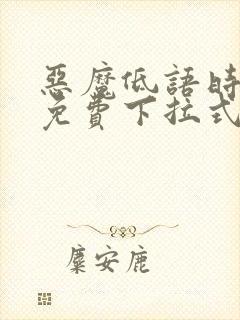 惡魔低語時
免費下拉式
麋安鹿